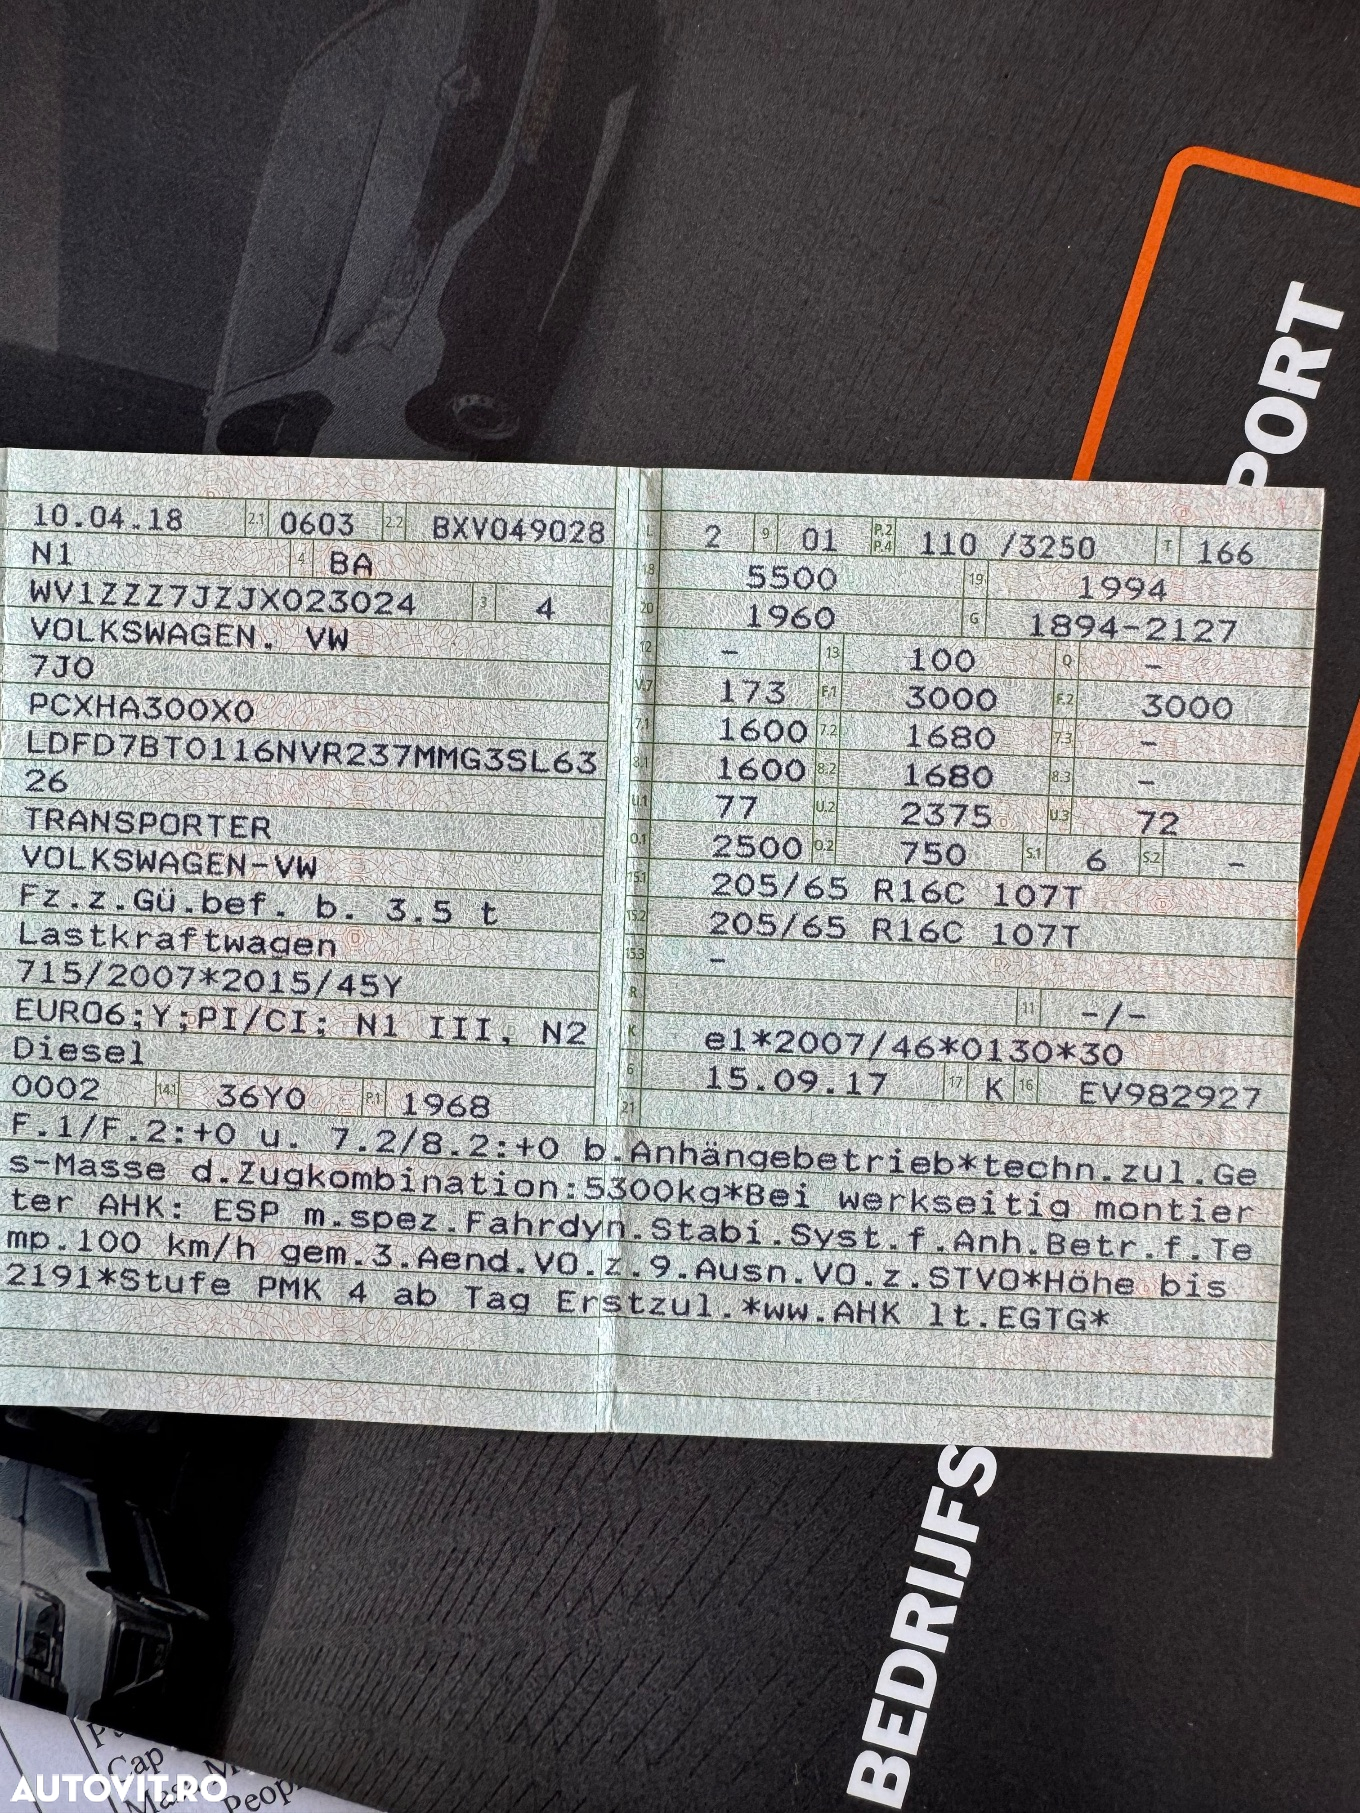 PORT
10.04.18 2.1 0603 2.2 BXV049028
N1 4 BA
WV1ZZZ7JZJX023024 3 4
VOLKSWAGEN, VW
7J0
PCXHA300X0
LDFD7BT0116NVR237MMG3SL63
26
TRANSPORTER
VOLKSWAGEN-VW
Fz.z.Gü.bef. b. 3.5 t
Lastkraftwagen
715/2007*2015/45Y
EURO6;Y;PI/CI; N1 III, N2
Diesel
0002 14.1 36Y0 P.1 1968
L 2 9 01 P.2 P.4 110 /3250 T 166
18 5500 19 1994
20 1960 G 1894-2127
12 - 13 100 Q -
V.7 173 F.1 3000 F.2 3000
7.1 1600 7.2 1680 7.3 -
8.1 1600 8.2 1680 8.3 -
U.1 77 U.2 2375 U.3 72
O.1 2500 O.2 750 S.1 6 S.2 -
15.1 205/65 R16C 107T
15.2 205/65 R16C 107T
15.3 -
R 11 -/-
K e1*2007/46*0130*30
6 15.09.17 17 K 16 EV982927
21
F.1/F.2:+0 u. 7.2/8.2:+0 b.Anhängebetrieb*techn.zul.Ge
s-Masse d.Zugkombination:5300kg*Bei werkseitig montier
ter AHK: ESP m.spez.Fahrdyn.Stabi.Syst.f.Anh.Betr.f.Te
mp.100 km/h gem.3.Aend.VO.z.9.Ausn.VO.z.STVO*Höhe bis
2191*Stufe PMK 4 ab Tag Erstzul.*ww.AHK lt.EGTG*
BEDRIJFS
Cap
AUTOVIT.RO